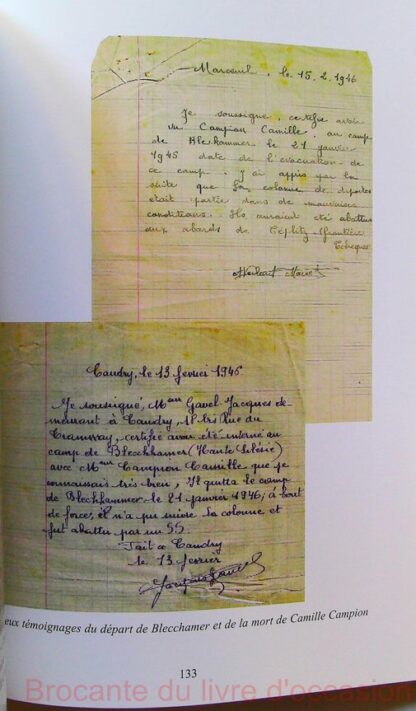 Maroeuil, le 15.2.1946
Je soussigné, certifie avoir
vu Campion Camille, au camp
de Blekhammer le 21 janvier
1945 date de l'évacuation de
ce camp. J'ai appris par la
suite que la colonne de déportés
était partie dans de mauvaises
conditions. Ils auraient été abattus
aux abords de Téplitz (frontière
Tchèque
Caudry, le 13 fevrier 1946
Je soussigné, Mr Gavel Jacques de-
meurant à Caudry, 11 bis Rue du
Tramway, certifie avoir été interné au
camp de Blecchhamer (Haute Silésie)
avec Mr Campion Camille que je
connaissais très bien, Il quitta le camp
de Blechhammer le 21 janvier 1946, à bout
de forces, il n'a pu suivre la colonne et
fut abattu par un SS.
Fait à Caudry
le 13 fevrier
eux témoignages du départ de Blecchamer et de la mort de Camille Campion
133
Brocante du livre d'occasion